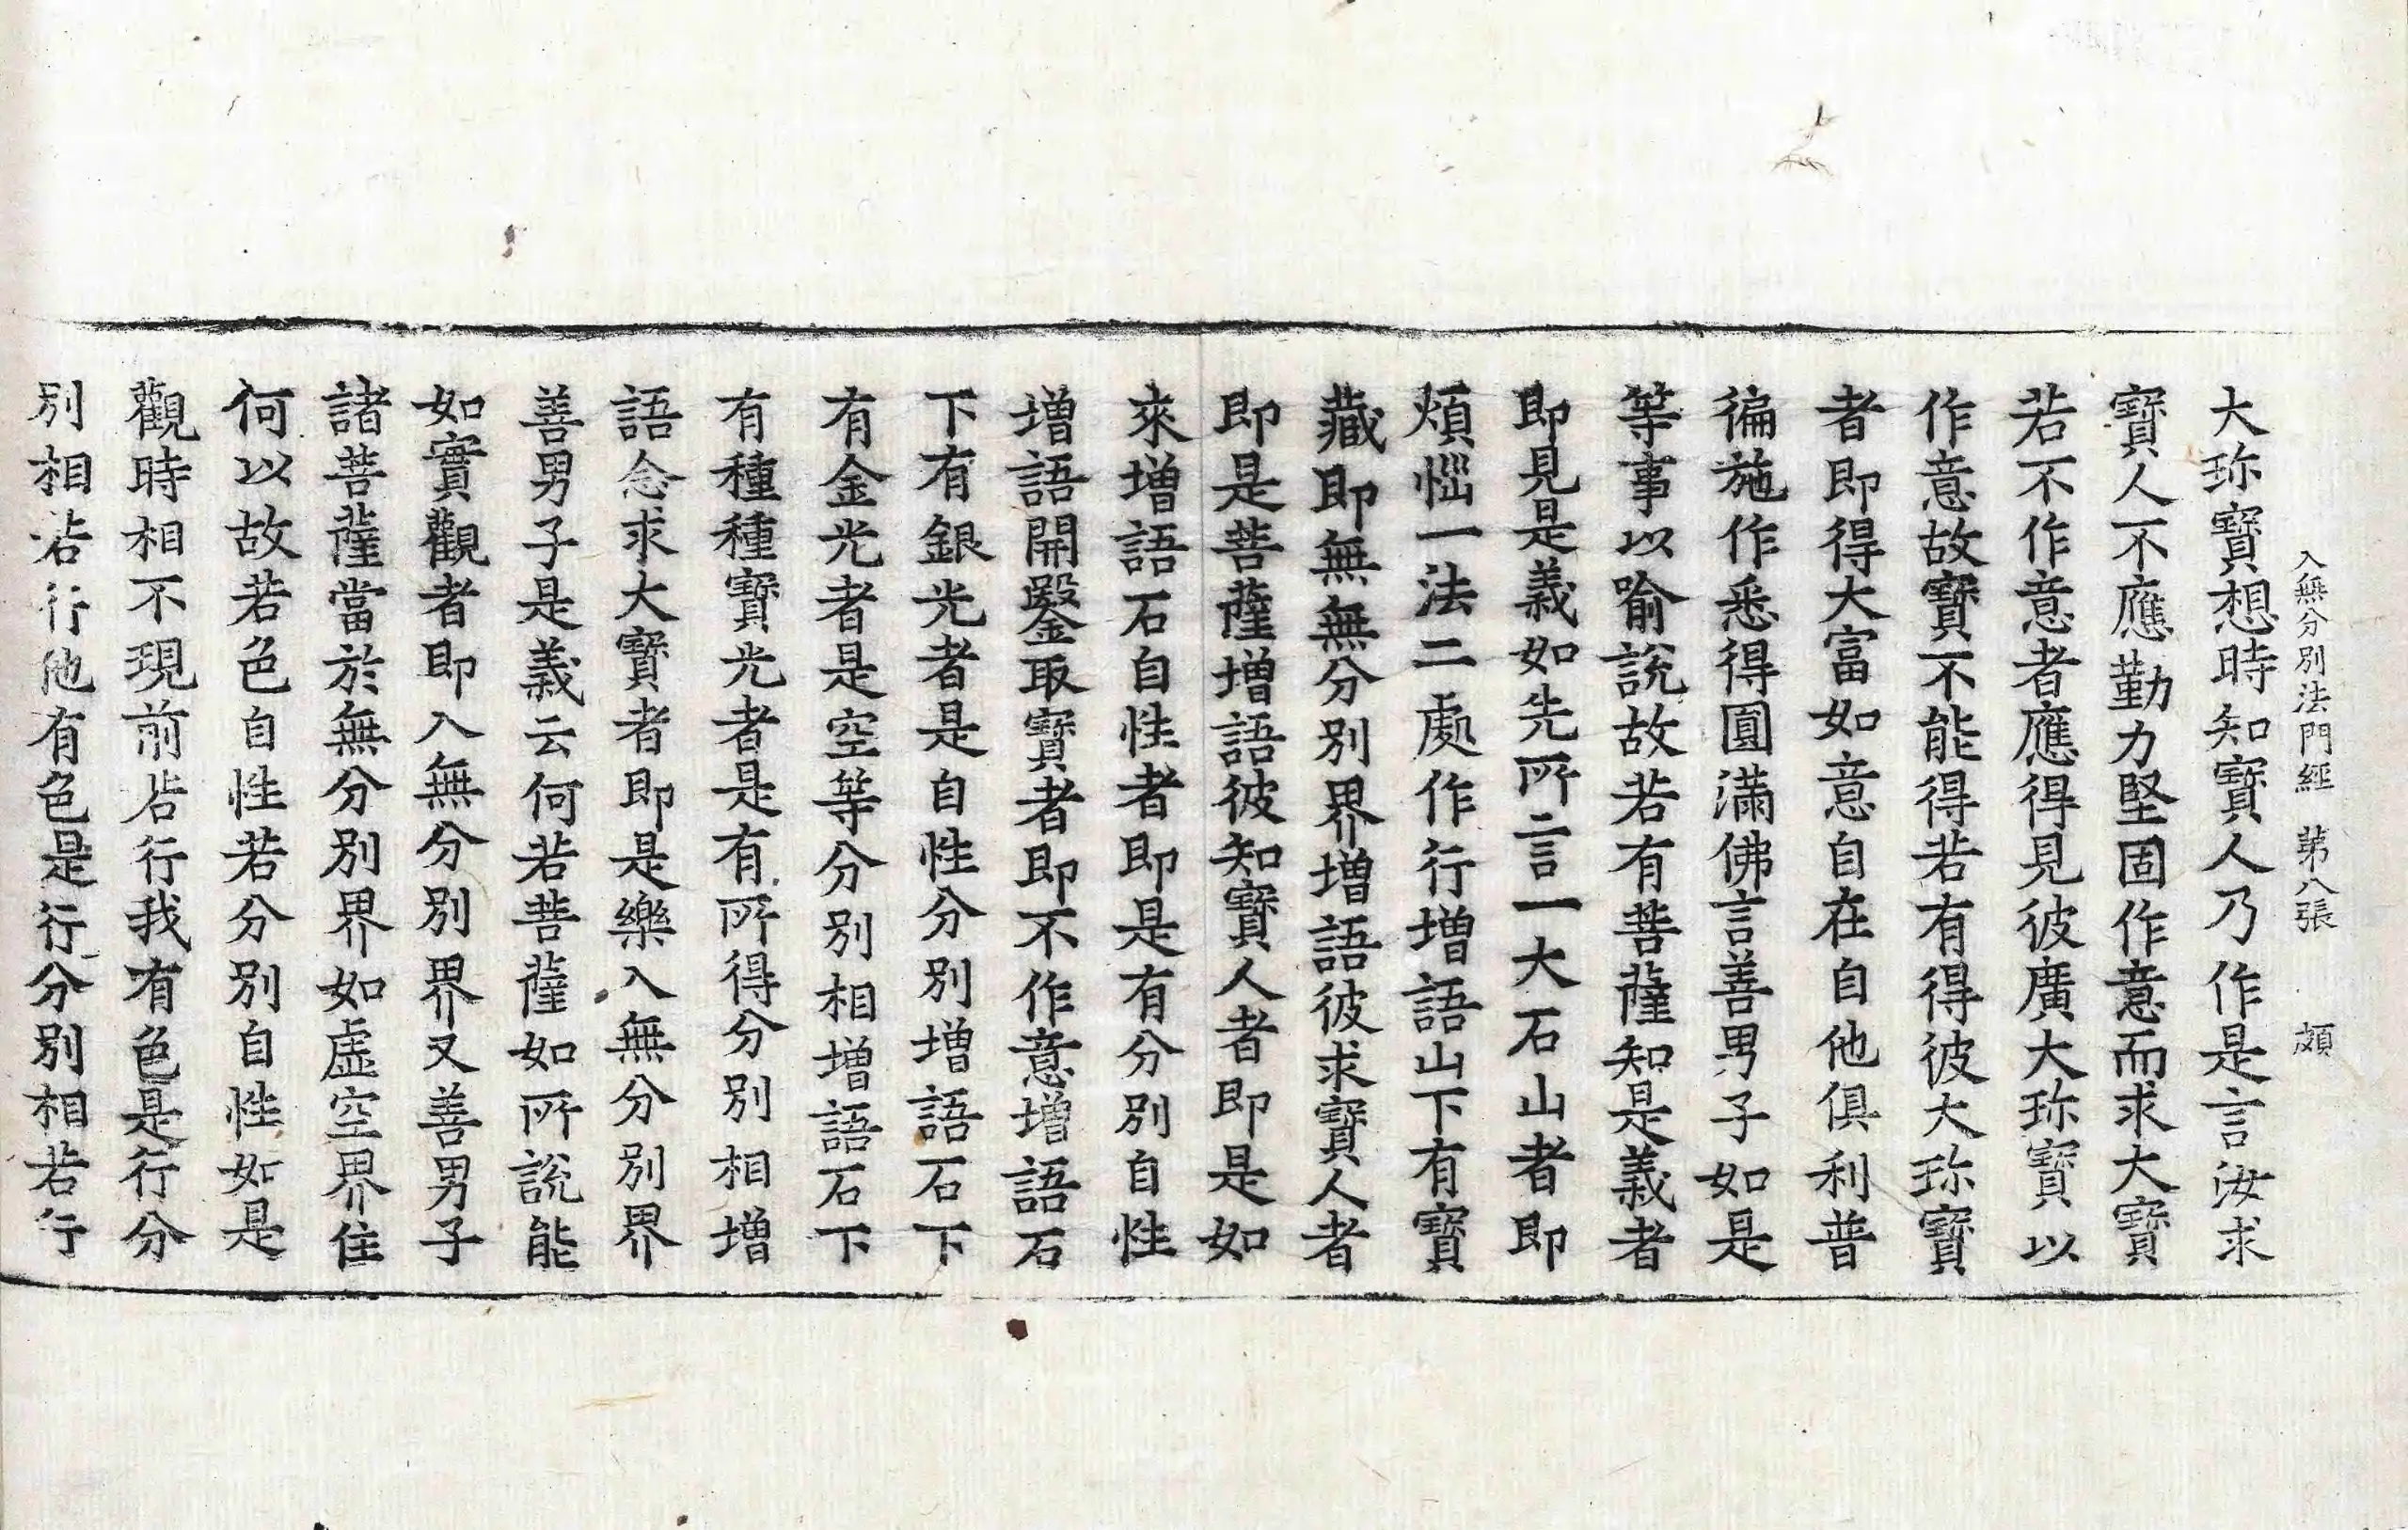 入無分別法門經 第八張 頗
大珎寶想時知寶人乃作是言汝求
寶人不應勤力堅固作意而求大寶
若不作意者應得見彼廣大珎寶以
作意故寶不能得若有得彼大珎寶
者即得大富如意自在自他俱利普
徧施作悉得圓滿佛言善男子如是
等事以喻說故若有菩薩知是義者
即見是義如先所言一大石山者即
煩惱一法二處作行增語山下有寶
藏即無無分別界增語彼求寶人者
即是菩薩增語彼知寶人者即是如
來增語石自性者即是有分別自性
增語開鑿取寶者即不作意增語石
下有銀光者是自性分別增語石下
有金光者是空等分別相增語石下
有種種寶光者是有所得分別相增
語念求大寶者即是樂入無分別界
善男子是義云何若菩薩如所說能
如實觀者即入無分別界又善男子
諸菩薩當於無分別界如虛空界住
何以故若色自性若分別自性如是
觀時相不現前若行我有色是行分
別相若行他有色是行分別相若行